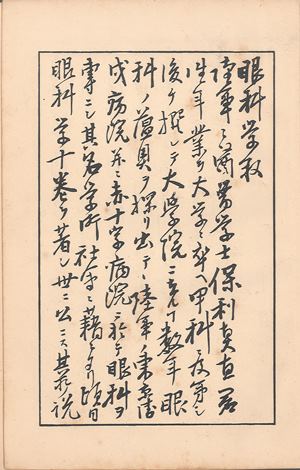 眼科学叙
陸軍々医学士保利真直君
往年業ヲ大学ニ卒ヘ甲科ニ及第シ
後ケ撰レテ大学院ニ入リ数年眼
科ノ薀奥ヲ探リ出テ陸軍ノ東京衛
戍病院并ニ赤十字病院ニ於テ眼科ヲ
専ニシ其名学術社会ニ藉甚タリ頃日
眼科学十巻ヲ著シ世ニ公ニス其教説